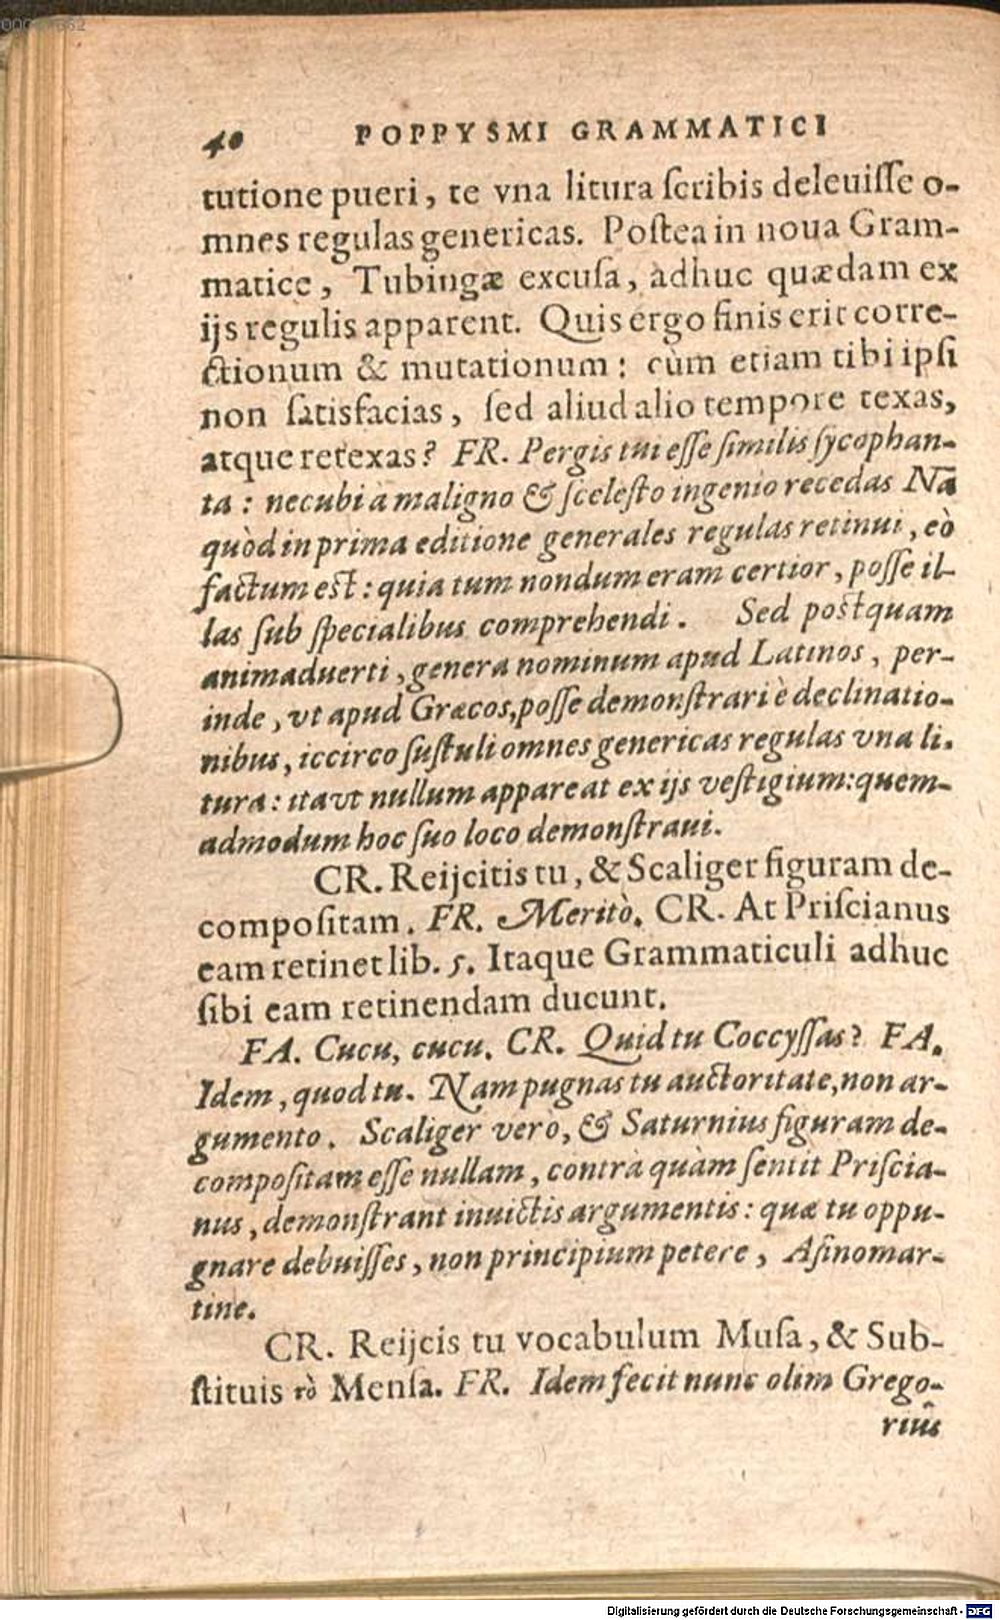 40 POPPYSMI GRAMMATICI
tutione pueri, te vna litura ſcribis deleuiſſe o-
mnes regulas genericas. Poſtea in noua Gram-
matice, Tubingæ excuſa, adhuc quædam ex
ijs regulis apparent. Quis ergo finis erit corre-
ctionum & mutationum: cùm etiam tibi ipſi
non ſatisfacias, ſed aliud alio tempore texas,
atque retexas? FR. Pergis tui eſſe ſimilis ſycophan-
ta: necubi à maligno & ſceleſto ingenio recedas Nā
quòd in prima editione generales regulas retinui, eò
factum eſt: quia tum nondum eram certior, poſſe il-
las ſub ſpecialibus comprehendi. Sed poſtquam
animaduerti, genera nominum apud Latinos, per-
inde, vt apud Græcos, poſſe demonſtrari è declinatio-
nibus, iccirco ſuſtuli omnes genericas regulas vna li-
tura: ita vt nullum appareat ex ijs veſtigium: quem-
admodum hoc ſuo loco demonſtraui.
CR. Reijcitis tu, & Scaliger figuram de-
compoſitam. FR. Meritò. CR. At Priſcianus
eam retinet lib. 5. Itaque Grammaticuli adhuc
ſibi eam retinendam ducunt.
FA. Cucu, cucu. CR. Quid tu Coccyſſas? FA.
Idem, quod tu. Nam pugnas tu auctoritate, non ar-
gumento. Scaliger verò, & Saturnius figuram de-
compoſitam eſſe nullam, contrà quàm ſentit Priſcia-
nus, demonſtrant inuictis argumentis: quæ tu oppu-
gnare debuiſſes, non principium petere, Aſinomar-
tine.
CR. Reijcis tu vocabulum Muſa, & Sub-
ſtituis τὸ Menſa. FR. Idem fecit nunc olim Grego-
riûs
Digitalisierung gefördert durch die Deutsche Forschungsgemeinschaft - DFG